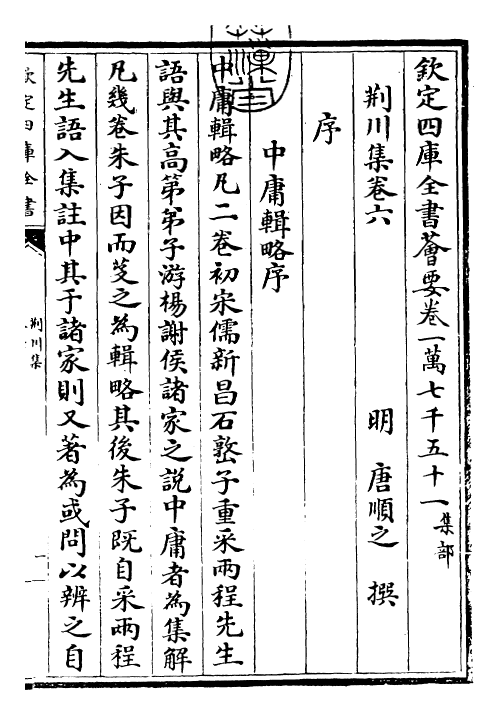 欽定四庫全書薈要卷一萬七千五十一集部
荆川集卷六
明 唐順之 撰
序
中庸輯略序
中庸輯略凡二卷初宋儒新昌石𡼖子重采兩程先生
語與其高第弟子游楊謝侯諸家之説中庸者為集解
凡幾卷朱子因而芟之為輯略其後朱子既自采兩程
先生語入集註中其于諸家則又著為或問以辨之自
欽定四庫全書
荆川集
一